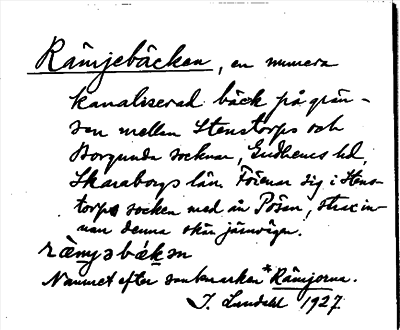 Rämjebäcken, en numera
kanaliserad bäck på grän-
sen mellan Stenstorps och
Borgunda socknar, Gudhems hd,
Skaraborgs län. Förenar sig i Stens-
torps socken med ån Pösan, strax in-
nan denna skär järnvägen.
Namnet efter sankmarken *Rämjorna.
J. Landahl 1927.